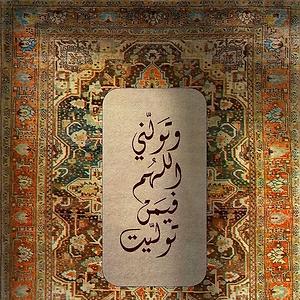 وتَولّني
اللهُم
فيمَن
تولّيت